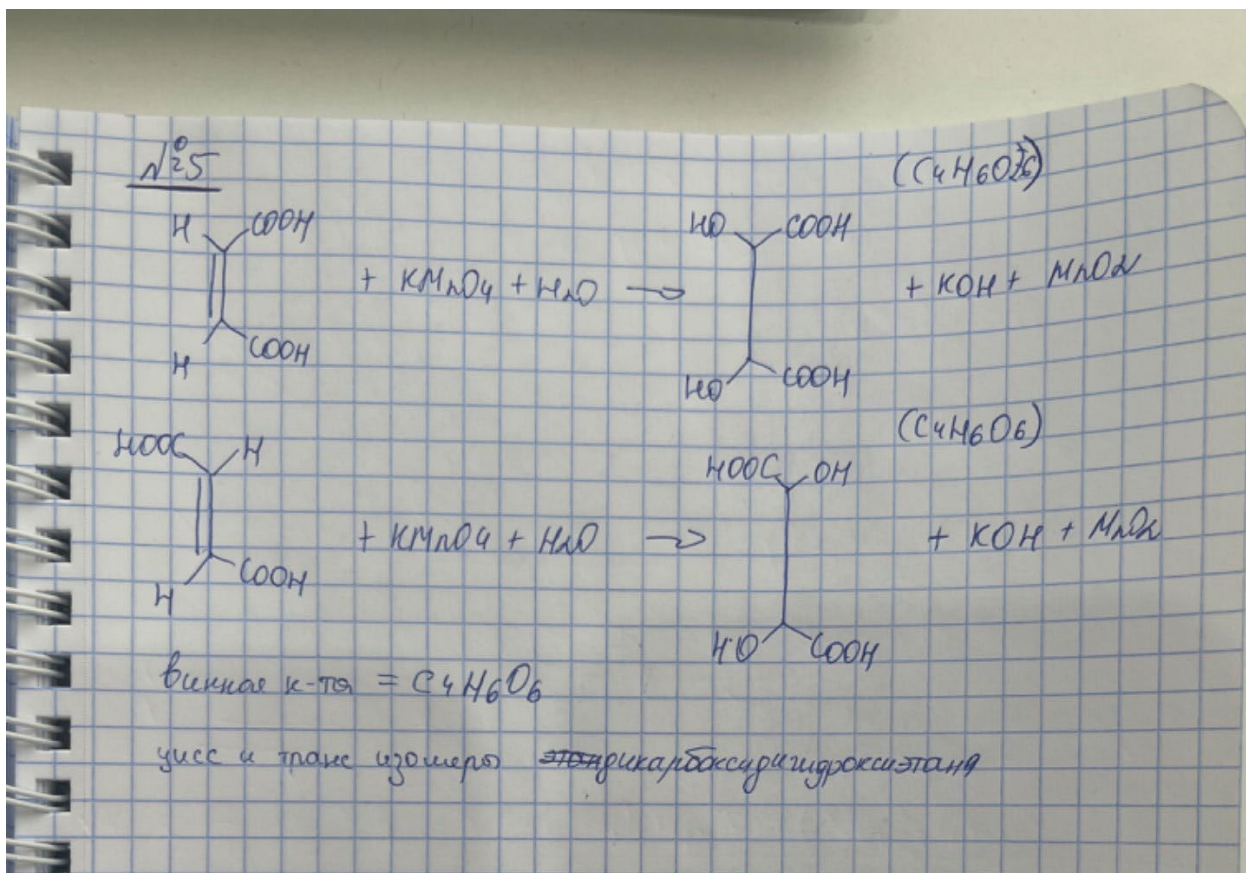 №5
(C4H6O6)
H COOH HO COOH
+ KMnO4 + H2O → + KOH + MnO2
H COOH HO COOH
(C4H6O6)
HOOC H HOOC OH
+ KMnO4 + H2O → + KOH + MnO2
H COOH HO COOH
винная к-та = C4H6O6
цисс и транс изомеры дикарбоксидигидроксиэтана